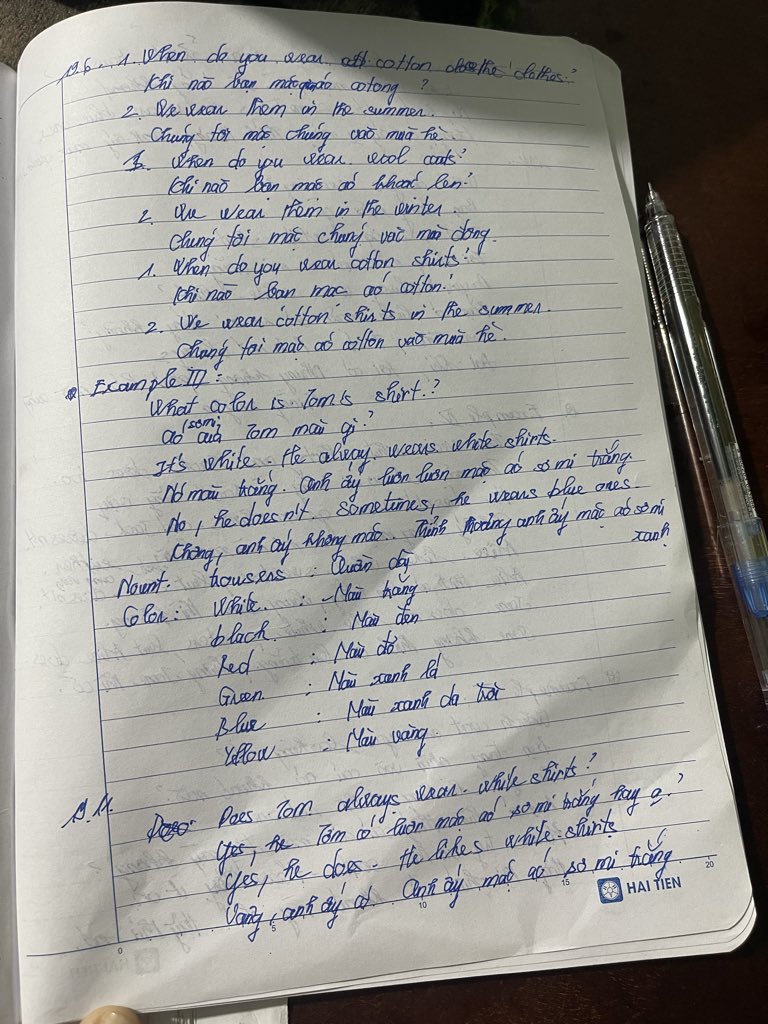 19.6. 1. When do you wear cotton clothes?
Khi nào bạn mặc quần áo cotong ?
2. We wear them in the summer.
Chúng tôi mặc chúng vào mùa hè.
1. When do you wear wool coats?
Khi nào bạn mặc áo khoác len?
2. We wear them in the winter.
Chúng tôi mặc chúng vào mùa đông.
1. When do you wear cotton shirts?
Khi nào bạn mặc áo cotton?
2. We wear cotton shirts in the summer.
Chúng tôi mặc áo cotton vào mùa hè.
Example III:
What color is Tom's shirt?
áo sơmi của Tom màu gì?
It's white. He always wears white shirts.
Nó màu trắng. anh ấy luôn luôn mặc áo sơ mi trắng.
No, he doesn't. Sometimes, he wears blue ones.
Không, anh ấy không mặc. Thỉnh thoảng anh ấy mặc áo sơ mi
xanh
Nount: trousers : Quần dây
Color: White : Màu trắng
black : Màu đen
Red : Màu đỏ
Green : Màu xanh lá
Blue : Màu xanh da trời
Yellow : Màu vàng.
Does Tom always wear white shirts?
Yes, he Tom có luôn mặc áo sơ mi trắng hay ạ?
Yes, he does. He likes white shirts
Vang, anh ấy có anh ấy mặc áo sơ mi trắng.
HAI TIEN
0 5 10 15 20
HAI TIEN